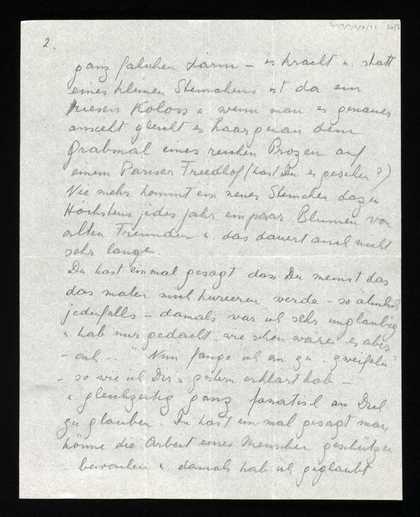 2.
ganz falschen Lärm – es kracht u. statt
eines kleinen Steinchens ist da ein
riesen Koloss u wenn man es genauer
ansieht gleicht es haargenau dem
Grabmal eines reichen Prozen auf
einem Pariser Friedhof (hast Du es gesehen?)
Nie mehr kommt ein neues Steinchen dazu
Höchstens jedes Jahr ein paar Blumen von
alten Freunden u das dauert auch nicht
sehr lange.
Du hast einmal gesagt dass Du meinst das
das malen mich werde – so ähnlich
jedenfalls – damals war ich sehr ungläubig
u hab nur gedacht, wie schön wäre es aber
– " Nun fange ich an zu „zweifeln"
– so wie ich Dir gestern erklärt hab –
u gleichzeitig ganz fanatisch an
zu glauben. Du hast einmal gesagt man
könne die Arbeit eines Menschen
u damals hab ich geglaubt